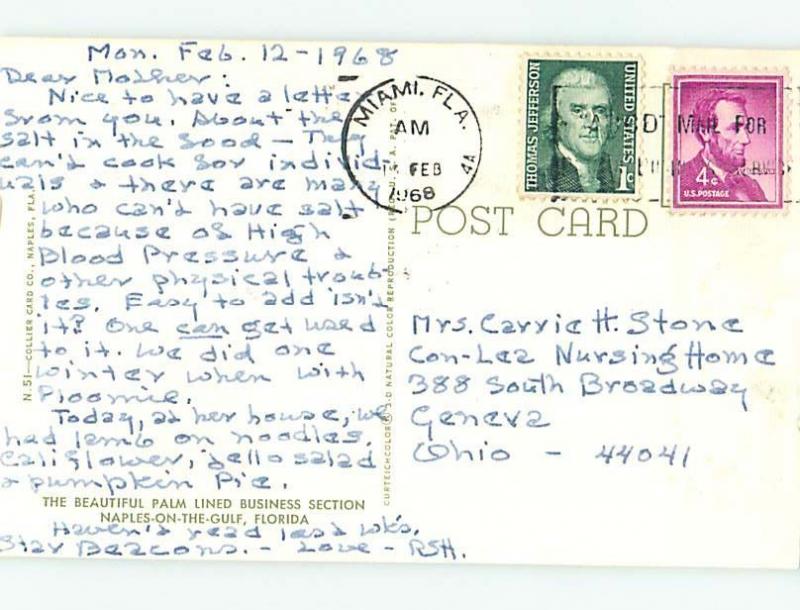 Mon. Feb. 12-1968
Dear Mother:
Nice to have a letter
from you. About the
salt in the food - They
can't cook for individ-
uals & there are many
who can't have salt
because of High
Blood Pressure &
other physical troub-
les. Easy to add isn't
it? One can get used
to it. We did one
winter when with
Floomie.
Today, at her house, we
had lamb on noodles,
Califlower, Jello salad
& pumpkin Pie.
THE BEAUTIFUL PALM LINED BUSINESS SECTION
NAPLES-ON-THE-GULF, FLORIDA
Haven't read last wk's.
Star Beacons. - Love - RSH.
N.51-COLLIER CARD CO., NAPLES, FLA.
CURTEICHCOLOR® 3-D NATURAL COLOR REPRODUCTION
MIAMI, FLA.
AM
FEB
1968
4A
THOMAS JEFFERSON
UNITED STATES
1c
MAIL FOR
4c
U.S. POSTAGE
POST CARD
Mrs. Carrie H. Stone
Con-Lea Nursing Home
388 South Broadway
Geneva
Ohio - 44041